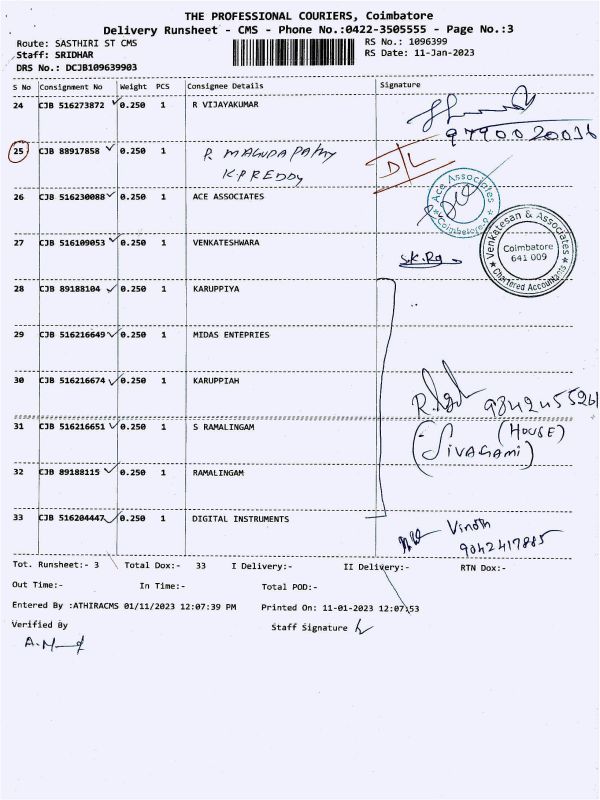 THE PROFESSIONAL COURIERS, Coimbatore
Delivery Runsheet - CMS - Phone No.:0422-3505555 - Page No.:3
Route: SASTHIRI ST CMS RS No.: 1096399
Staff: SRIDHAR RS Date: 11-Jan-2023
DRS No.: DCJB109639903
S No Consignment No Weight PCS Consignee Details Signature
24 CJB 516273872 0.250 1 R VIJAYAKUMAR
9790020036
25 CJB 88917858 0.250 1 R MAGUDAPATHY D/L
K.P REDDY
26 CJB 516230088 0.250 1 ACE ASSOCIATES
Ace Associates
Coimbatore-9
27 CJB 516109053 0.250 1 VENKATESHWARA
Venkatesan & Associates
Coimbatore
641 009
Chartered Accountants
28 CJB 89188104 0.250 1 KARUPPIYA
29 CJB 516216649 0.250 1 MIDAS ENTEPRIES
30 CJB 516216674 0.250 1 KARUPPIAH
9842455261
31 CJB 516216651 0.250 1 S RAMALINGAM (HOUSE)
(SIVAGAMI)
32 CJB 89188115 0.250 1 RAMALINGAM
33 CJB 516204447 0.250 1 DIGITAL INSTRUMENTS
Vinoth
9042417885
Tot. Runsheet:- 3 Total Dox:- 33 I Delivery:- II Delivery:- RTN Dox:-
Out Time:- In Time:- Total POD:-
Entered By :ATHIRACMS 01/11/2023 12:07:39 PM Printed On: 11-01-2023 12:07:53
Verified By Staff Signature